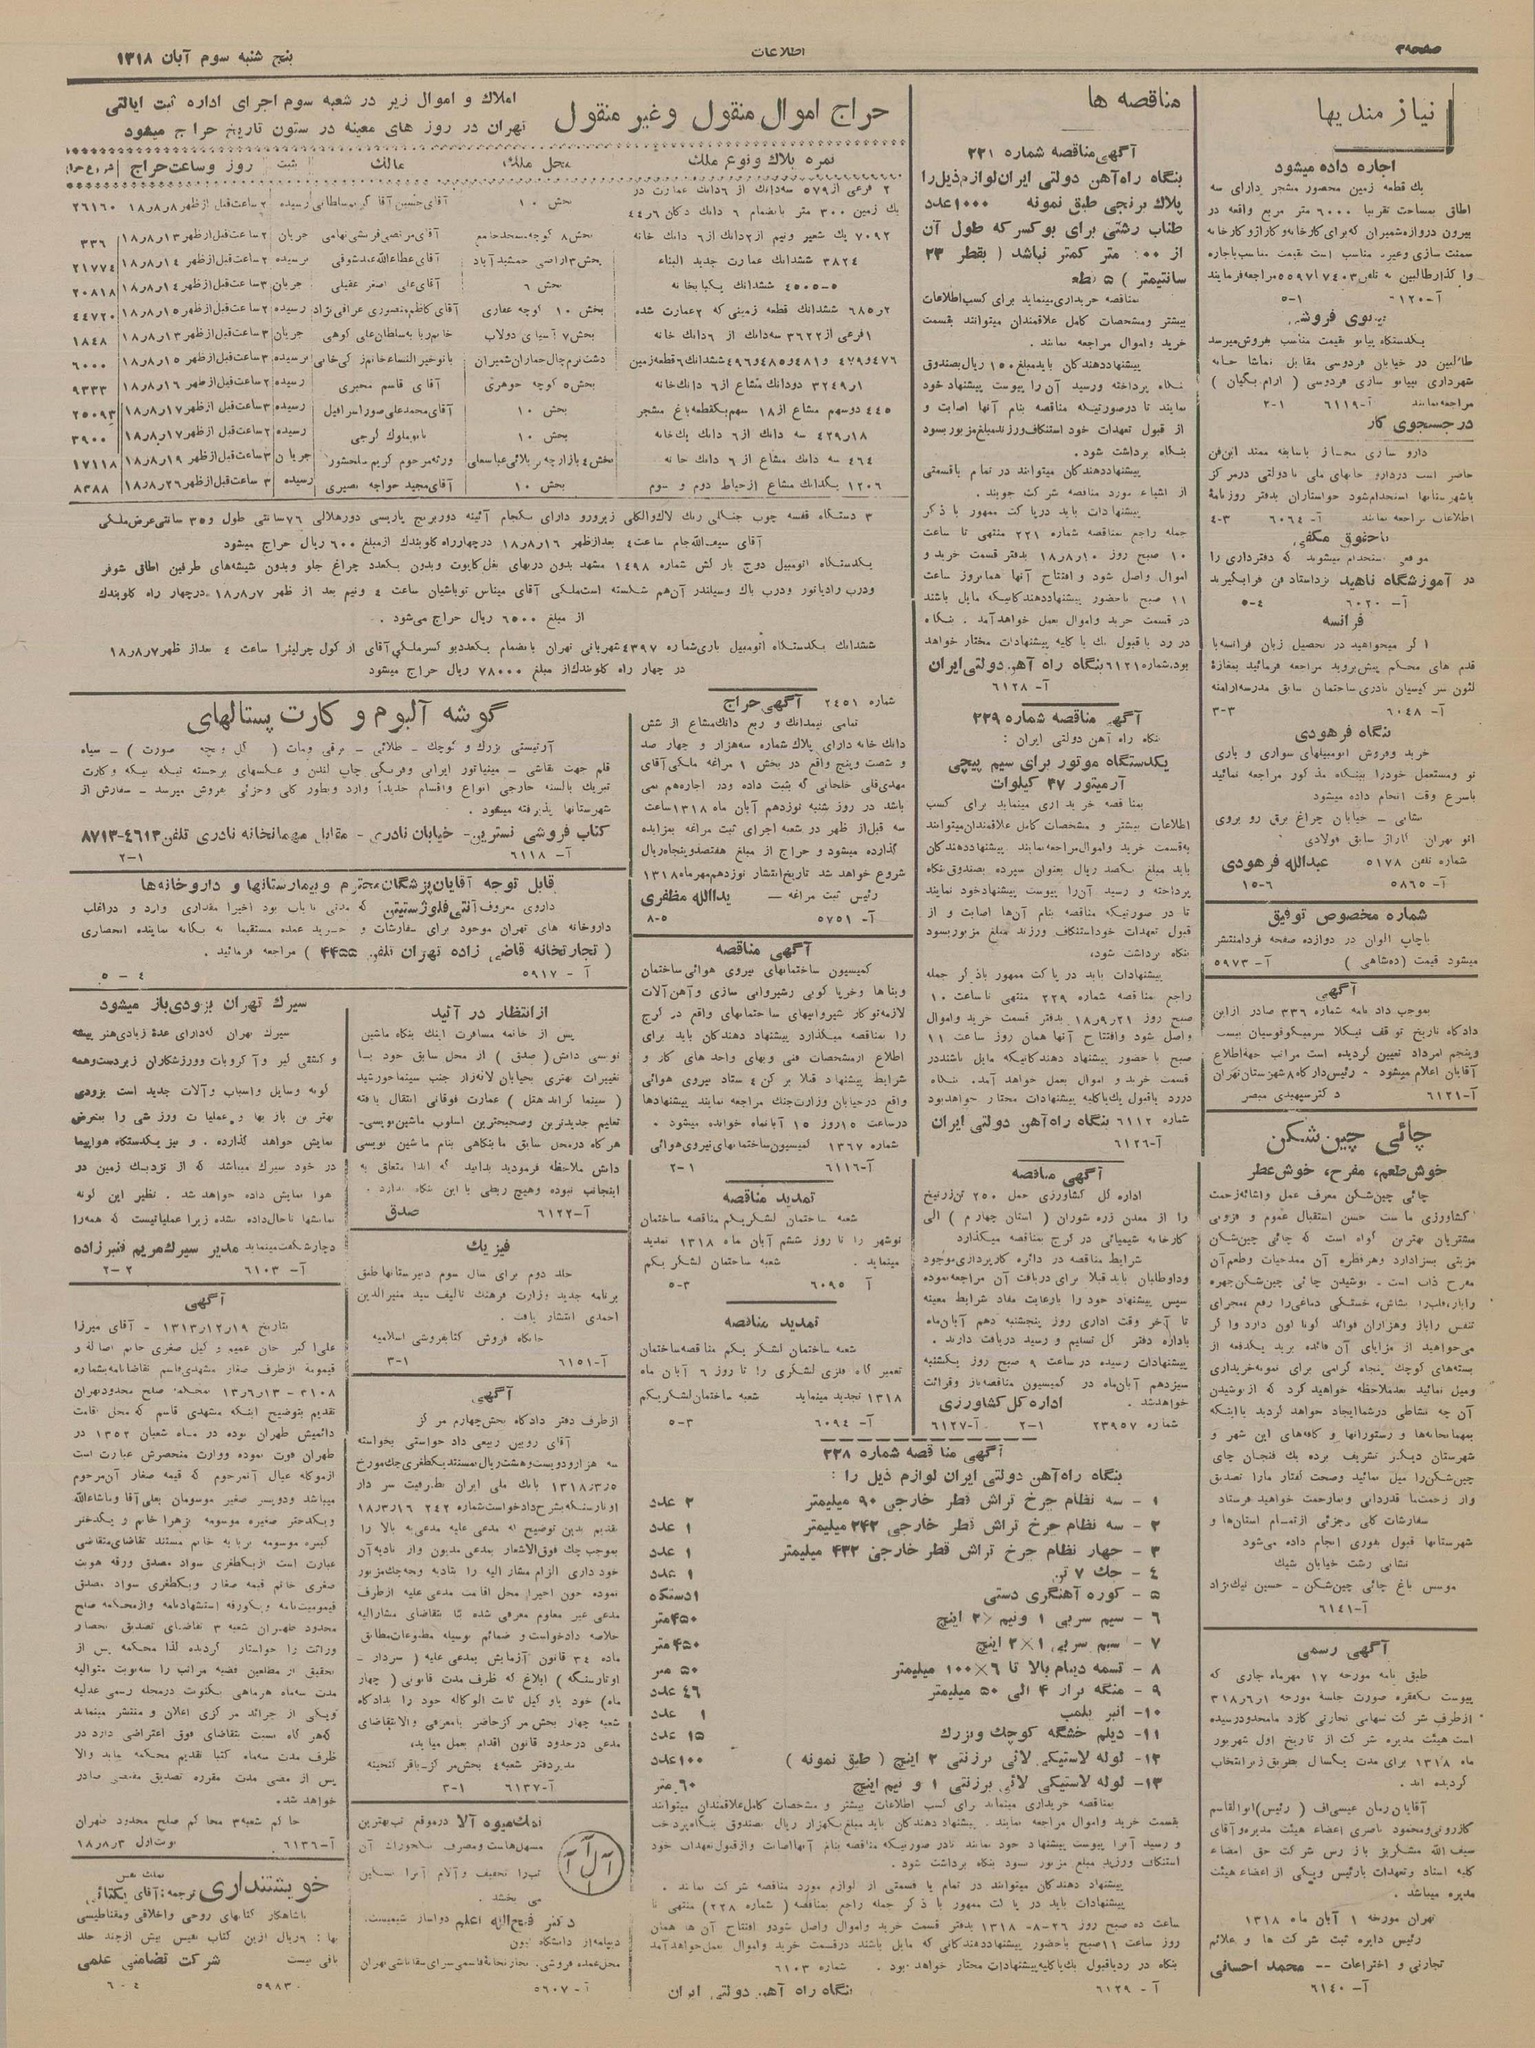 صفحه ۳
اطلاعات
پنج شنبه سوم آبان ۱۳۱۸
نیاز مندیها
اجاره داده میشود
یك قطعه زمین محصور مشجر دارای سه
اطاق بمساحت تقریبا ۶۰۰۰ متر مربع واقعه در
بیرون دروازه شمیران که برای کارخانه و کاراژ و کارخانه
سمنت سازی وغیره مناسب است بقیمت مناسب باجاره
واگذار طالبین به تلفن ۷۴۰۳ یا ۵۵۹۷ مراجعه فرمایند
آ–۶۱۲۰ ۱-۵
پیانوی فروشی
یکدستگاه پیانو بقیمت مناسب بفروش میرسد
طالبین در خیابان فردوسی مقابل تماشا خانه
شهرداری پیانو سازی فردوسی ( آرام بگیان )
مراجعه نمایند آ–۶۱۱۹ ۱-۲
در جستجوی کار
دارو سازی مجاز باسابقه ممتد این فن
حاضر است در دارو خانهای ملی یا دولتی در مرکز
یا شهرستانها استخدام شود خواستاران بدفتر روزنامهٔ
اطلاعات مراجعه نمایند آ–۶۰۶۴ ۳-۴
باحقوق مکفی
استخدام میشوید که دفترداری را
در آموزشگاه ناهید نزد استاد فن فراگیرید
آ–۶۰۲۰ ۴-۵
فرانسه
اگر میخواهید در تحصیل زبان فرانسه با
قدم های محکم پیش بروید مراجعه فرمائید بمغازهٔ
لئون سرکیسیان نادری ساختمان سابق مدرسه ارامنه
آ–۶۰۴۸ ۳-۳
بنگاه فرهودی
خرید وفروش اتومبیلهای سواری و باری
نو ومستعمل خودرا ببنگاه مذکور مراجعه نمائید
باسرع وقت انجام داده میشود
نشانی – خیابان چراغ برق رو بروی
اتو تهران گاراژ سابق فولادی
شماره تلفن ۵۱۷۸ عبدالله فرهودی
آ–۵۸۶۵ ۶-۱۵
شماره مخصوص توفیق
باچاپ الوان در دوازده صفحه فردا منتشر
میشود قیمت (ده شاهی) آ–۵۹۷۳
آگهی
بموجب دادنامه شماره ۳۳۶ صادر از این
دادگاه تاریخ توقف نیکلا سرمیکوفوسیان بیست
وپنجم امرداد تعیین گردیده است مراتب جهة اطلاع
آقایان اعلام میشود – رئیس دادگاه ۸ شهرستان تهران
آ–۶۱۲۱ دکتر سپهبدی مبصر
چائی چین شکن
خوش طعم، مفرح، خوش عطر
چائی چین شکن معرف عمل واشانه زحمت
کشاورزی ما ست حسن استقبال عموم و فزونی
مشتریان بهترین گواه است که چائی چین شکن
مزیتی بسزا دارد وهر قطره آن ممد حیات وطعم آن
مفرح ذات است . نوشیدن چائی چین شکن چهره
تنفس را باز وهزاران فوائد گوناگون دارد واگر
میخواهید از مزایای آن فائده برید یکدفعه از
بسته های کوچک پنجاه گرامی برای نمونه خریداری
ومیل نمائید بعد ملاحظه خواهید کرد که از نوشیدن
آن چه نشاطی در شما ایجاد خواهد گردید یا اینکه
بمهمانخانه ها و رستورانها و کافه های این شهر و
شهرستان دیگر تشریف برده یک فنجان چای
چین شکن را میل نمائید وصحت گفتار مارا تصدیق
واز زحمت ما قدردانی وبما رحمت خواهید فرستاد
سفارشات کلی وجزئی از تمام استان ها و
شهرستانها قبول بفوری انجام داده میشود
نشانی رشت خیابان شیك
موسس باغ چائی چین شکن – حسین نیک نژاد
آ–۶۱۴۱
آگهی رسمی
طبق نامه مورخه ۱۷ مهرماه جاری که
پیوست یکفقره صورت جلسه مورخه ۳۱۸ر۶ر۱
از طرف شرکت سهامی تجارتی کازد ما محدود رسیده
است هیئت مدیره شرکت از تاریخ اول شهریور
ماه ۱۳۱۸ برای مدت یکسال بطریق زیر انتخاب
گردیده اند .
آقایان زمان عیسی اف ( رئیس) ابوالقاسم
کازرونی ومحمود ناصری اعضاء هیئت مدیره و آقای
سیف الله مشکریز باز رس شرکت حق امضاء
کلیه اسناد وتعهدات بارئیس ویکی از اعضاء هیئت
مدیره میباشد .
تهران مورخه ۱ آبان ماه ۱۳۱۸
رئیس دایره ثبت شرکت ها و علائم
تجارتی و اختراعات –– محمد احسانی
آ–۶۱۴۰
مناقصه ها
آگهی مناقصه شماره ۲۲۱
بنگاه راه آهن دولتی ایران لوازم ذیل را
پلاك برنجی طبق نمونه ۱۰۰۰عدد
طناب رشتی برای بوکسر که طول آن
متر کمتر نباشد ( بقطر ۲۳
سانتیمتر ) ۵ قطعه
بمناقصه خریداری مینماید برای کسب اطلاعات
بیشتر ومشخصات کامل علاقمندان میتوانند بقسمت
خرید واموال مراجعه نمایند .
پیشنهاد دهندکان باید مبلغ ۱۵۰ ریال بصندوق
بنگاه پرداخته ورسید آن را پیوست پیشنهاد خود
نمایند تا در صورتیکه مناقصه بنام آنها اصابت و
از قبول تعهدات خود استنکاف ورزند مبلغ مزبور بسود
بنگاه برداشت شود .
پیشنهاد دهندکان میتوانند در تمام یا قسمتی
از اشیاء مورد مناقصه شرکت جویند .
پیشنهادات باید در پاکت ممهور با ذکر
جمله راجع بمناقصه شماره ۲۲۱ منتهی تا ساعت
۱۰ صبح روز ۱۸ر۸ر۱۰ بدفتر قسمت خرید و
اموال واصل شود و افتتاح آنها همان روز ساعت
۱۱ صبح با حضور پیشنهاد دهندکانیکه مایل باشند
در قسمت خرید و اموال بعمل خواهد آمد . بنگاه
در رد یا قبول یك یا کلیه پیشنهادات مختار خواهد
بود. شماره ۶۱۲۱ بنگاه راه آهن دولتی ایران
آ– ۶۱۲۸
آگهی مناقصه شماره ۲۲۹
بنگاه راه آهن دولتی ایران :
یکدستگاه موتور برای سیم پیچی
آرمیتور ۳۷ کیلوات
بمناقصه خریداری مینماید برای کسب
اطلاعات بیشتر و مشخصات کامل علاقمندان میتوانند
بقسمت خرید واموال مراجعه نمایند پیشنهاد دهندکان
باید مبلغ یکصد ریال بعنوان سپرده بصندوق بنگاه
پرداخته و رسید آن را پیوست پیشنهاد خود نمایند
تا در صورتیکه مناقصه بنام آن ها اصابت و از
قبول تعهدات خود استنکاف ورزند مبلغ مزبور بسود
بنگاه برداشت شود،
پیشنهادات باید در پاکت ممهور با ذکر جمله
راجع بمناقصه شماره ۲۲۹ منتهی تا ساعت ۱۰
صبح روز ۱۸ر۹ر۲۱ بدفتر قسمت خرید واموال
واصل شود وافتتاح آنها همان روز ساعت ۱۱
صبح با حضور پیشنهاد دهندکانیکه مایل باشند در
قسمت خرید و اموال بعمل خواهد آمد. بنگاه
در رد یا قبول یك یا کلیه پیشنهادات مختار خواهد بود
شماره ۶۱۱۲ بنگاه راه آهن دولتی ایران
آ–۶۱۲۶
آگهی مناقصه
اداره کل کشاورزی حمل ۲۵۰ تن زرنیخ
را از معدن زره شوران ( استان چهارم ) الی
کارخانه شیمیائی در کرج بمناقصه میگذارد
شرایط مناقصه در دائره کارپردازی موجود
وداوطلبان باید قبلا برای دریافت آن مراجعه نموده
سپس پیشنهاد خود را بارعایت مفاد شرایط معینه
تا آخر وقت اداری روز پنجشنبه دهم آبان ماه
باداره دفتر کل تسلیم و رسید دریافت دارند .
پیشنهادات رسیده در ساعت ۹ صبح روز یکشنبه
سیزدهم آبان ماه در کمیسیون مناقصه باز و قرائت
خواهد شد . اداره کل کشاورزی
شماره ۲۳۹۵۷ ۱-۲ آ–۶۱۲۷
حراج اموال منقول وغیر منقول
املاك و اموال زیر در شعبه سوم اجرای اداره ثبت ایالتی
تهران در روز های معینه در ستون تاریخ حراج میشود
نمره پلاك ونوع ملك محل ملك مالك ثبت روز وساعت حراج شروع حراج
۲ فرعی از ۵۷۹ سه دانك از ۶ دانك عمارت در
یك زمین ۳۰۰ متر بانضمام ۶ دانك دکان ۶ر۴۴ بخش ۱۰ آقای حسین آقا کریم سلطانی رسیده ۲ ساعت قبل از ظهر ۱۸ر۸ر۸ ۲۶۱۶۰
۷۰۹۲ یك شعیر ونیم از ۲ دانك از ۶ دانك خانه بخش ۸ کوچه مسجد جامع آقای مرتضی قریشی نهامی جریان ۲ ساعت قبل از ظهر ۱۸ر۸ر۱۳ ۳۳۶
۳۸۲۴ ششدانك عمارت جدید البناء بخش ۳ اراضی جمشید آباد آقای عطاءالله عبد شوقی نرسیده ۲ ساعت قبل از ظهر ۱۸ر۸ر۱۴ ۲۱۷۷۴
۴۰۰۵-۵ ششدانك یکبابخانه بخش ۶ آقای علی اصغر عقیلی جریان ۳ ساعت قبل از ظهر ۱۸ر۸ر۱۴ ۲۰۸۱۸
۲ر۶۸۵ ششدانك قطعه زمینی که ۲ عمارت شده بخش ۱۰ کوچه غفاری آقای کاظم منصوری عراقی نژاد رسیده ۲ ساعت قبل از ظهر ۱۸ر۸ر۱۵ ۴۴۷۲۰
۱ فرعی از ۳۶۲۲ سه دانك از ۶ دانك خانه بخش ۷ آسیای دولاب خانم ربابه سلطان علی کوهی جریان ۳ ساعت قبل از ظهر ۱۸ر۸ر۱۳ ۱۸۴۸
۴۷۶ و ۴۷۹ و ۴۸۱ و ۴۸۵ و ۴۹۶ ششدانك ۶ قطعه زمین دشت نرم چال جماران شمیران بانو خیرالنساء خانم ترکی خانی نرسیده ۳ ساعت قبل از ظهر ۱۸ر۸ر۱۵ ۶۰۰۰
۱ر۳۲۴۹ دو دانك مشاع از ۶ دانك خانه بخش ۵ کوچه جوهری آقای قاسم مخبری رسیده ۲ ساعت قبل از ظهر ۱۸ر۸ر۱۶ ۹۳۳۳
۴۴۵ دو سهم مشاع از ۱۸ سهم یکقطعه باغ مشجر بخش ۱۰ آقای محمد علی صور اسرافیل رسیده ۳ ساعت قبل از ظهر ۱۸ر۸ر۱۷ ۲۵۰۹۳
۱۸ر۴۲۹ سه دانك از ۶ دانك یك خانه بخش ۱۰ بانو ملوك کرجی رسیده ۲ ساعت قبل از ظهر ۱۸ر۸ر۱۷ ۳۹۰۰
۴۶۴ سه دانك مشاع از ۶ دانك خانه بخش ۴ بازارچه کربلائی عباسعلی ورثه مرحوم کریم سلحشور جریان ۳ ساعت قبل از ظهر ۱۸ر۸ر۱۹ ۱۷۱۱۸
۱۲۰۶ یکدانك مشاع از حیاط دوم و سوم بخش ۱۰ آقای مجید خواجه نصیری رسیده ۳ ساعت قبل از ظهر ۱۸ر۸ر۲۶ ۸۳۸۸
۳ دستگاه قفسه چوب جنگلی رنك لاك والکلی زیرورو دارای پنجاه آئینه دور برنج پاریسی دور هلالی ۷۶ سانتی طول و ۳۵ سانتی عرض ملکی
آقای سیف الله جام ساعت ۴ بعد از ظهر ۱۸ر۸ر۱۶ در چهارراه کلوبندك از مبلغ ۶۰۰ ریال حراج میشود
یکدستگاه اتومبیل دوج بارکش شماره ۱۴۹۸ مشهد بدون دربهای بغل کاپوت وبدون یکعدد چراغ جلو وبدون شیشه های طرفین اطاق شوفر
ودرب رادیاتور ودرب باك وسیلندر آن هم شکسته است ملکی آقای میناس توباشیان ساعت ۴ ونیم بعد از ظهر ۱۸ر۸ر۷ در چهار راه کلوبندك
از مبلغ ۶۵۰۰ ریال حراج می شود .
ششدانك یکدستگاه اتومبیل باری شماره ۴۳۹۷ شهربانی تهران بانضمام یکعدد بوکسر ملکی آقای ازکول چرلیانرا ساعت ۴ بعد از ظهر ۱۸ر۸ر۷
در چهار راه کلوبندك از مبلغ ۷۸۰۰۰ ریال حراج میشود
شماره ۲۴۵۱ آگهی حراج
تمامی نیمدانك و ربع دانك مشاع از شش
دانك خانه دارای پلاك شماره سه هزار و چهار صد
و شصت وپنج واقع در بخش ۱ مراغه ملکی آقای
مهدیقلی خلخانی که بثبت داده ودر اجاره هم نمی
باشد در روز شنبه نوزدهم آبان ماه ۱۳۱۸ ساعت
سه قبل از ظهر در شعبه اجرای ثبت مراغه بمزایده
گذارده میشود و حراج از مبلغ هفتصد وپنجاه ریال
شروع خواهد شد تاریخ انتشار نوزدهم مهرماه ۱۳۱۸
رئیس ثبت مراغه – یدالله مظفری
آ– ۵۷۵۱ ۵-۸
آگهی مناقصه
کمیسیون ساختمانهای نیروی هوائی ساختمان
وبناها وخرپا کوبی وشیروانی سازی و آهن آلات
لازمه نوکار شیروانیهای ساختمانهای واقع در کرج
را بمناقصه میگذارد پیشنهاد دهندکان باید برای
اطلاع از مشخصات فنی وبهای واحد های کار و
شرایط پیشنهاد قبلا برکن ۴ ستاد نیروی هوائی
واقع در خیابان وزارت جنك مراجعه نمایند پیشنهادها
در ساعت ۱۵ روز ۱۵ آبانماه خوانده میشود .
شماره ۱۳۶۷ کمیسیون ساختمانهای نیروی هوائی
آ–۶۱۱۶ ۱-۲
تمدید مناقصه
شعبه ساختمان لشکر یکم مناقصه ساختمان
نوشهر را تا روز ششم آبان ماه ۱۳۱۸ تمدید
مینماید . شعبه ساختمان لشکر یکم
آ ۶۰۹۵ ۳-۵
تمدید مناقصه
شعبه ساختمان لشکر یکم مناقصه ساختمان
تعمیر گاه فنری لشکری را تا روز ۶ آبان ماه
۱۳۱۸ تجدید مینماید شعبه ساختمان لشکر یکم
آ– ۶۰۹۴ ۳-۵
آگهی مناقصه شماره ۲۲۸
بنگاه راه آهن دولتی ایران لوازم ذیل را :
۱ – سه نظام چرخ تراش قطر خارجی ۹۰ میلیمتر ۲ عدد
۲ – سه نظام چرخ تراش قطر خارجی ۲۴۲ میلیمتر ۱ عدد
۳ – چهار نظام چرخ تراش قطر خارجی ۴۳۲ میلیمتر ۱ عدد
۴ – جك ۷ تن ۱ عدد
۵ – کوره آهنگری دستی ۱ دستگاه
۶ – سیم سربی ۱ ونیم × ۲ اینچ ۴۵۰ متر
۷ – سیم سربی ۱×۲ اینچ ۴۵۰ متر
۸ – تسمه دینام بالا تا ۶×۱۰۰ میلیمتر ۵۰ متر
۹ – منگه برار ۴ الی ۵۰ میلیمتر ۴۶ عدد
۱۰– انبر پلمب ۱ عدد
۱۱– دیلم خشگه کوچك وبزرك ۱۵ عدد
۱۲– لوله لاستیکی لائی برزنتی ۲ اینچ ( طبق نمونه ) ۱۰۰عدد
۱۳– لوله لاستیکی لائی برزنتی ۱ و نیم اینچ ۶۰ متر
بمناقصه خریداری مینماید برای کسب اطلاعات بیشتر و مشخصات کامل علاقمندان میتوانند
بقسمت خرید واموال مراجعه نمایند . پیشنهاد دهندکان باید مبلغ یکهزار ریال بصندوق بنگاه پرداخت
و رسید آنرا پیوست پیشنهاد خود نمایند تا در صورتیکه مناقصه بنام آنها اصابت واز قبول تعهدات خود
استنکاف ورزند مبلغ مزبور بسود بنگاه برداشت شود .
پیشنهاد دهندکان میتوانند در تمام یا قسمتی از لوازم مورد مناقصه شرکت نمایند .
پیشنهادات باید در پاکت ممهور با ذکر جمله راجع بمناقصه ( شماره ۲۲۸) منتهی تا
ساعت ده صبح روز ۲۶–۸– ۱۳۱۸ بدفتر قسمت خرید واموال واصل شود و افتتاح آن ها همان
روز ساعت ۱۱ صبح باحضور پیشنهاد دهندکانی که مایل باشند در قسمت خرید و اموال بعمل خواهد آمد
بنگاه در رد یا قبول یك یا کلیه پیشنهادات مختار خواهد بود . شماره ۶۱۰۳
آ – ۶۱۲۹ بنگاه راه آهن دولتی ایران
گوشه آلبوم و کارت پستالهای
آرتیستی بزرك و کوچك – طلائی – برقی ومات ( گل و بچه صورت ) – سیاه
قلم جهت نقاشی – مینیاتور ایرانی وفرنگی چاپ لندن و عکسهای برجسته تیکه تیکه وکارت
تبریك بالسنه خارجی انواع واقسام جدیداً وارد وبطور کلی وجزئی بفروش میرسد – سفارش از
شهرستانها پذیرفته میشود .
کتاب فروشی نسترین– خیابان نادری– مقابل مهمانخانه نادری تلفن ۴۶۱۳–۸۷۱۳
آ– ۶۱۱۸ ۱–۲
قابل توجه آقایان پزشگان محترم وبیمارستانها و داروخانه ها
داروی معروف آنتی فلوژستیتن که مدتی نایاب بود اخیرا مقداری وارد و در اغلب
داروخانه های تهران موجود برای سفارشات و خرید عمده مستقیما به یگانه نماینده انحصاری
( تجارتخانه قاضی زاده تهران تلفن ۴۴۵۵ ) مراجعه فرمائید .
آ – ۵۹۱۷ ۴ – ۵
از انتظار در آئید
پس از خاتمه مسافرت اینك بنگاه ماشین
نویسی دانش ( صدق ) از محل سابق خود بسا
تغییرات بهتری بخیابان لاله زار جنب سینما خورشید
( سینما گراند هتل ) عمارت فوقانی انتقال یافته
تعلیم جدیدترین وصحیحترین اسلوب ماشین نویسی–
هر گاه در محل سابق ما بنگاهی بنام ماشین نویسی
دانش ملاحظه فرمودید بدانید که ابدا متعلق به
اینجانب نبوده وهیچ ربطی با این بنگاه ندارد .
آ–۶۱۲۲ صدق
فیزیك
جلد دوم برای سال سوم دبیرستانها طبق
برنامه جدید وزارت فرهنك تألیف سید منیرالدین
احمدی انتشار یافت .
جایگاه فروش کتابفروشی اسلامیه
آ–۶۱۵۱ ۱–۳
آگهی
از طرف دفتر دادگاه بخش چهارم مرکز
آقای روبین ربیعی دادخواستی بخواسته
سه هزار و دویست وهشت ریال بمستند یکطغری چك مورخ
۱۳۱۸ر۳ر۵ بانك ملی ایران بطرفیت سردار
اوتار سنگه بشرح دادخواست شماره ۲۴۲ ۱۸ر۳ر۱۶
تقدیم بدین توضیح که مدعی علیه مدعی به بالا را
بموجب چك فوق الاشعار بمدعی مدیون واز تادیه آن
خودداری الزام مشارالیه را بتادیه وجه چك مزبور
نموده چون اخیرا محل اقامت مدعی علیه از طرف
مدعی غیر معلوم معرفی شده بنا بتقاضای مشارالیه
خلاصه دادخواست و ضمائم بوسیله مطبوعات مطابق
ماده ۳۴ قانون آزمایش بمدعی علیه ( سردار –
اوتار سنگه ) ابلاغ که ظرف مدت قانونی ( چهار
ماه) خود یا وکیل ثابت الوکاله خود را بدادگاه
شعبه چهار بخش مرکز حاضر یا معرفی والا بتقاضای
مدعی در حدود قانون اقدام بعمل میاید .
مدیر دفتر شعبه ۴ بخش مرکز–باقر گنجینه
آ–۶۱۳۷ ۱–۳
نمك میوه آلا در مواقع تب بهترین
مسهل هاست ومصرف آن
تب را تخفیف وآلام آنرا تسکین
می بخشد .
آلا
دکتر فتح الله اعلم دواساز شیمیست
دیپلمه از دانشگاه لیون
محل عمده فروشی: تجارتخانهٔ قاسمی سرای سقا باشی تهران
آ–۵۶۰۷
سیرك تهران بزودی باز میشود
سیرك تهران که دارای عدهٔ زیادی هنر پیشه
و کشتی گیر و آکروبات وورزشکاران زبردست وهمه
گونه وسایل واسباب وآلات جدید است بزودی
بهترین بازیها وعملیات ورزشی را بمعرض
نمایش خواهد گذارده . و نیز یکدستگاه هواپیما
در خود سیرك میباشد که از نزدیك زمین در
هوا نمایش داده خواهد شد . نظیر این گونه
نمایشها تاحال داده نشده زیرا عملیاتیست که همه را
دچار شگفت مینماید مدیر سیرك مریم قنبرزاده
آ–۶۱۰۳ ۲–۲
آگهی
بتاریخ ۱۳۱۳ر۱۲ر۱۹ – آقای میرزا
علی اکبر خان عمیم وکیل صغری خانم اصالة و
قیمومة از طرف صغار مشهدی قاسم تقاضانامه بشماره
۳۱۰۸ – ۱۳ر۶ر۱۳ بمحکمه صلح محدود تهران
تقدیم بتوضیح اینکه مشهدی قاسم که محل اقامت
دائمیش طهران بوده در ماه شعبان ۱۳۵۲ در
طهران فوت نموده ووارث منحصرش عبارت است
از موکله عیال آنمرحوم که قیمه صغار آن مرحوم
میباشد ودو پسر صغیر موسومان بعلی آقا وماشاءالله
ویکدختر صغیره موسومه بزهرا خانم و یکدختر
کبیره موسومه بربابه خانم مستند تقاضای متقاضی
عبارت است از یکطغری سواد مصدق ورقه هویت
صغری خانم قیمه صغار ویکطغری سواد مصدق
قیمومیت نامه ویکورقه استشهادنامه واز محکمه صلح
محدود طهران شعبه ۳ تقاضای تصدیق انحصار
وراثت را خواستار گردیده لذا محکمه پس از
تحقیق از مطلعین قضیه مراتب را سه نوبت متوالیه
مدت سه ماه هر ماهی یکنوبت در مجله رسمی عدلیه
ویکی از جرائد مرکزی اعلان و منتشر مینماید
که هر گاه کسی نسبت بتقاضای فوق اعتراضی دارد در
ظرف مدت سه ماه کتبا تقدیم محکمه نماید والا
پس از مضی مدت مقرره تصدیق مقتضی صادر
خواهد شد .
حاکم شعبه ۳ محاکم صلح محدود طهران
آ–۶۱۳۶ نوبت اول ۱۸ر۸ر۳
خویشتنداری
ترجمه : آقای یکتائی
یا شاهکار کتابهای روحی واخلاقی ومغناطیسی
بها : ۶ ریال از این کتاب نفیس بیش از چند جلد
باقی نیست شرکت تضامنی علمی
۵۹۸۳ ۴–۶